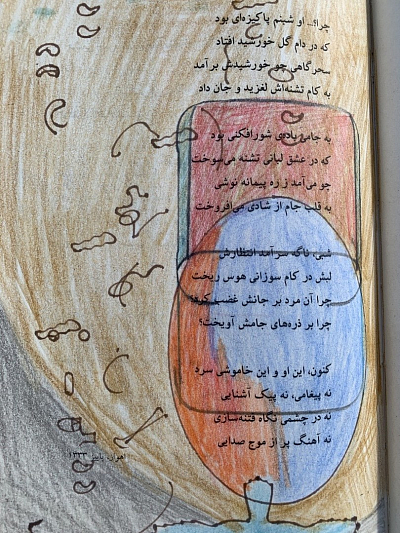 چرا؟.. او شبنم پاکیزه‌ای بود
که در دام گل خورشید افتاد
سحرگاهی چو خورشیدش برآمد
به کام تشنه‌اش لغزید و جان داد
به جامی باده‌ی شورافکنی بود
که در عشق لبانی تشنه می‌سوخت
چو می‌آمد ز ره پیمانه نوشی
به قلب جام از شادی می‌افروخت
شبی، ناگه سرآمد انتظارش
لبش در کام سوزانی هوس ریخت
چرا آن مرد بر جانش غضب کرد؟
چرا بر ذره‌های جامش آویخت؟
کنون، این او و این خاموشی سرد
نه پیغامی، نه پیک آشنایی
نه در چشمی نگاه فتنه‌سازی
نه آهنگ پر از موج صدایی
اهواز، پاییز ۱۳۳۳